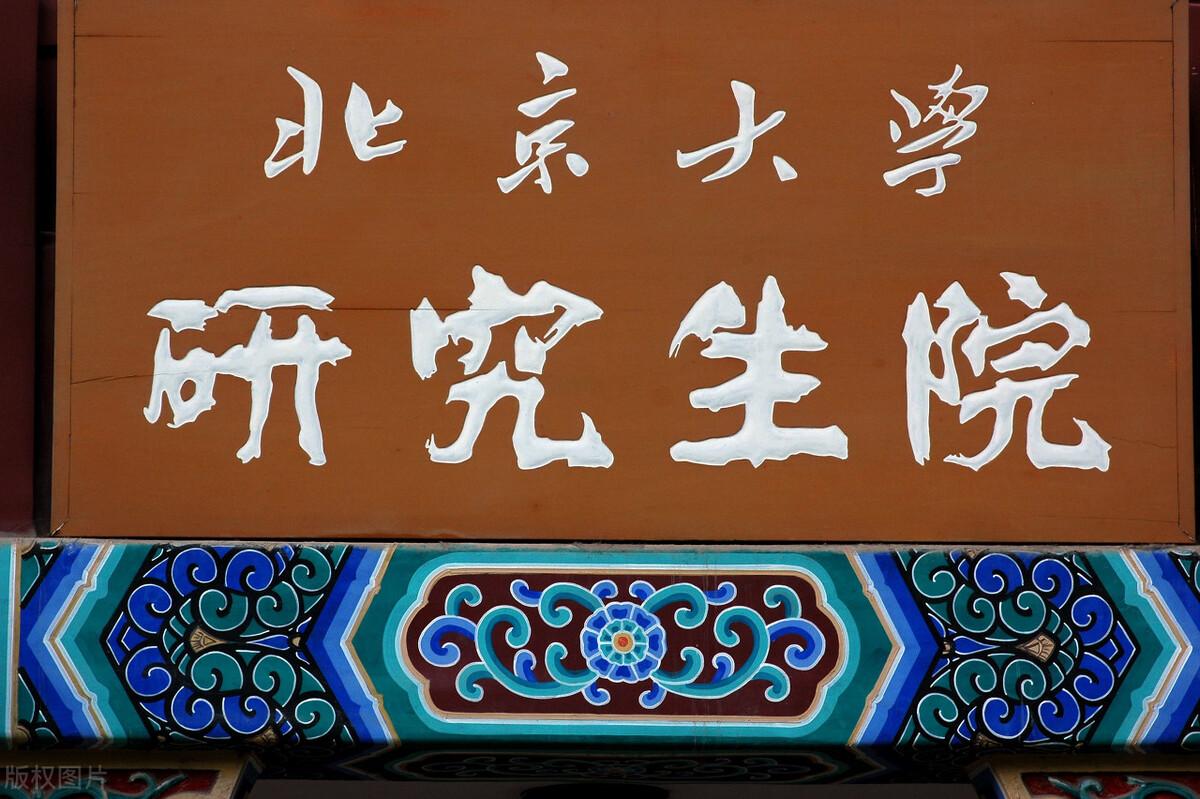 北京大学
研究生院
版权图片